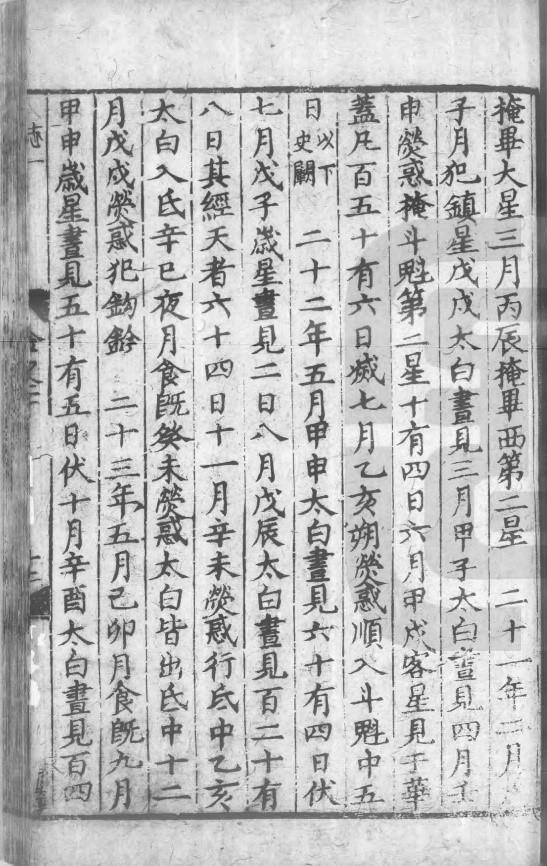 掩畢大星三月丙辰掩畢西第二星　二十一年二月
子月犯鎮星戊戌太白晝見三月甲子太白晝見四月壬
申熒惑掩斗魁第二星十有四日六月甲戌客星見于華
蓋凡百五十有六日滅七月乙亥朔熒惑順入斗魁中五
日以下史闕　二十二年五月甲申太白晝見六十有四日伏
七月戊子歳星晝見二日八月戊辰太白晝見百二十有
八日其經天者六十四日十一月辛未熒惑行氐中乙亥
太白入氐辛巳夜月食旣癸未熒惑太白皆出氐中十二
月戊戌熒惑犯鈎鈐　二十三年五月己卯月食旣九月
甲申歳星晝見五十有五日伏十月辛酉太白晝見百四
志一